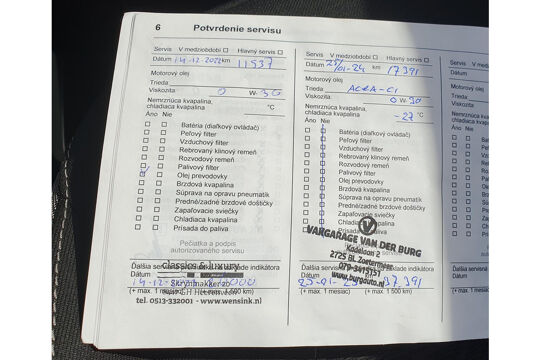 6 Potvrdenie servisu
Servis V medziobdobí ☐ Hlavný servis ☐
Dátum 14-12-2022 km 11537
Motorový olej
Trieda
Viskozita 0 W- 30
Nemrznúca kvapalina,
chladiaca kvapalina °C
Áno Nie
Batéria (diaľkový ovládač)
Peľový filter
Vzduchový filter
Rebrovaný klinový remeň
Rozvodový remeň
Palivový filter
Olej prevodovky
Brzdová kvapalina
Súprava na opravu pneumatík
Predné/zadné brzdové doštičky
Zapaľovacie sviečky
Chladiaca kvapalina
Prísada do paliva
Pečiatka a podpis
autorizovaného servisu
Classics & Luxury
Ďalšia základe indikátora
Dátum
14-12-
Skrynmakker
(+ max. 1 mesiac) (+ max. 1 500 km)
tel. 0513-332001 - www.wensink.nl
Servis V medziobdobí ☐ Hlavný servis ☐
Dátum 25/01-24 km 17391
Motorový olej
Trieda ACEA-C1
Viskozita 0 W- 30
Nemrznúca kvapalina,
chladiaca kvapalina -27 °C
Áno Nie
Batéria (diaľkový ovládač)
Peľový filter
Vzduchový filter
Rebrovaný klinový remeň
Rozvodový remeň
Palivový filter
Olej prevodovky
Brzdová kvapalina
Súprava na opravu pneumatík
Predné/zadné brzdové doštičky
Zapaľovacie sviečky
Chladiaca kvapalina
Prísada do paliva
VARGARAGE VAN DER BURG
2725 BL Zoetermeer
www.burgauto.nl
Ďalšia základe indikátora
Dátum
25-01-25 37.391
(+ max. 1 mesiac) (+ max. 1 500 km)